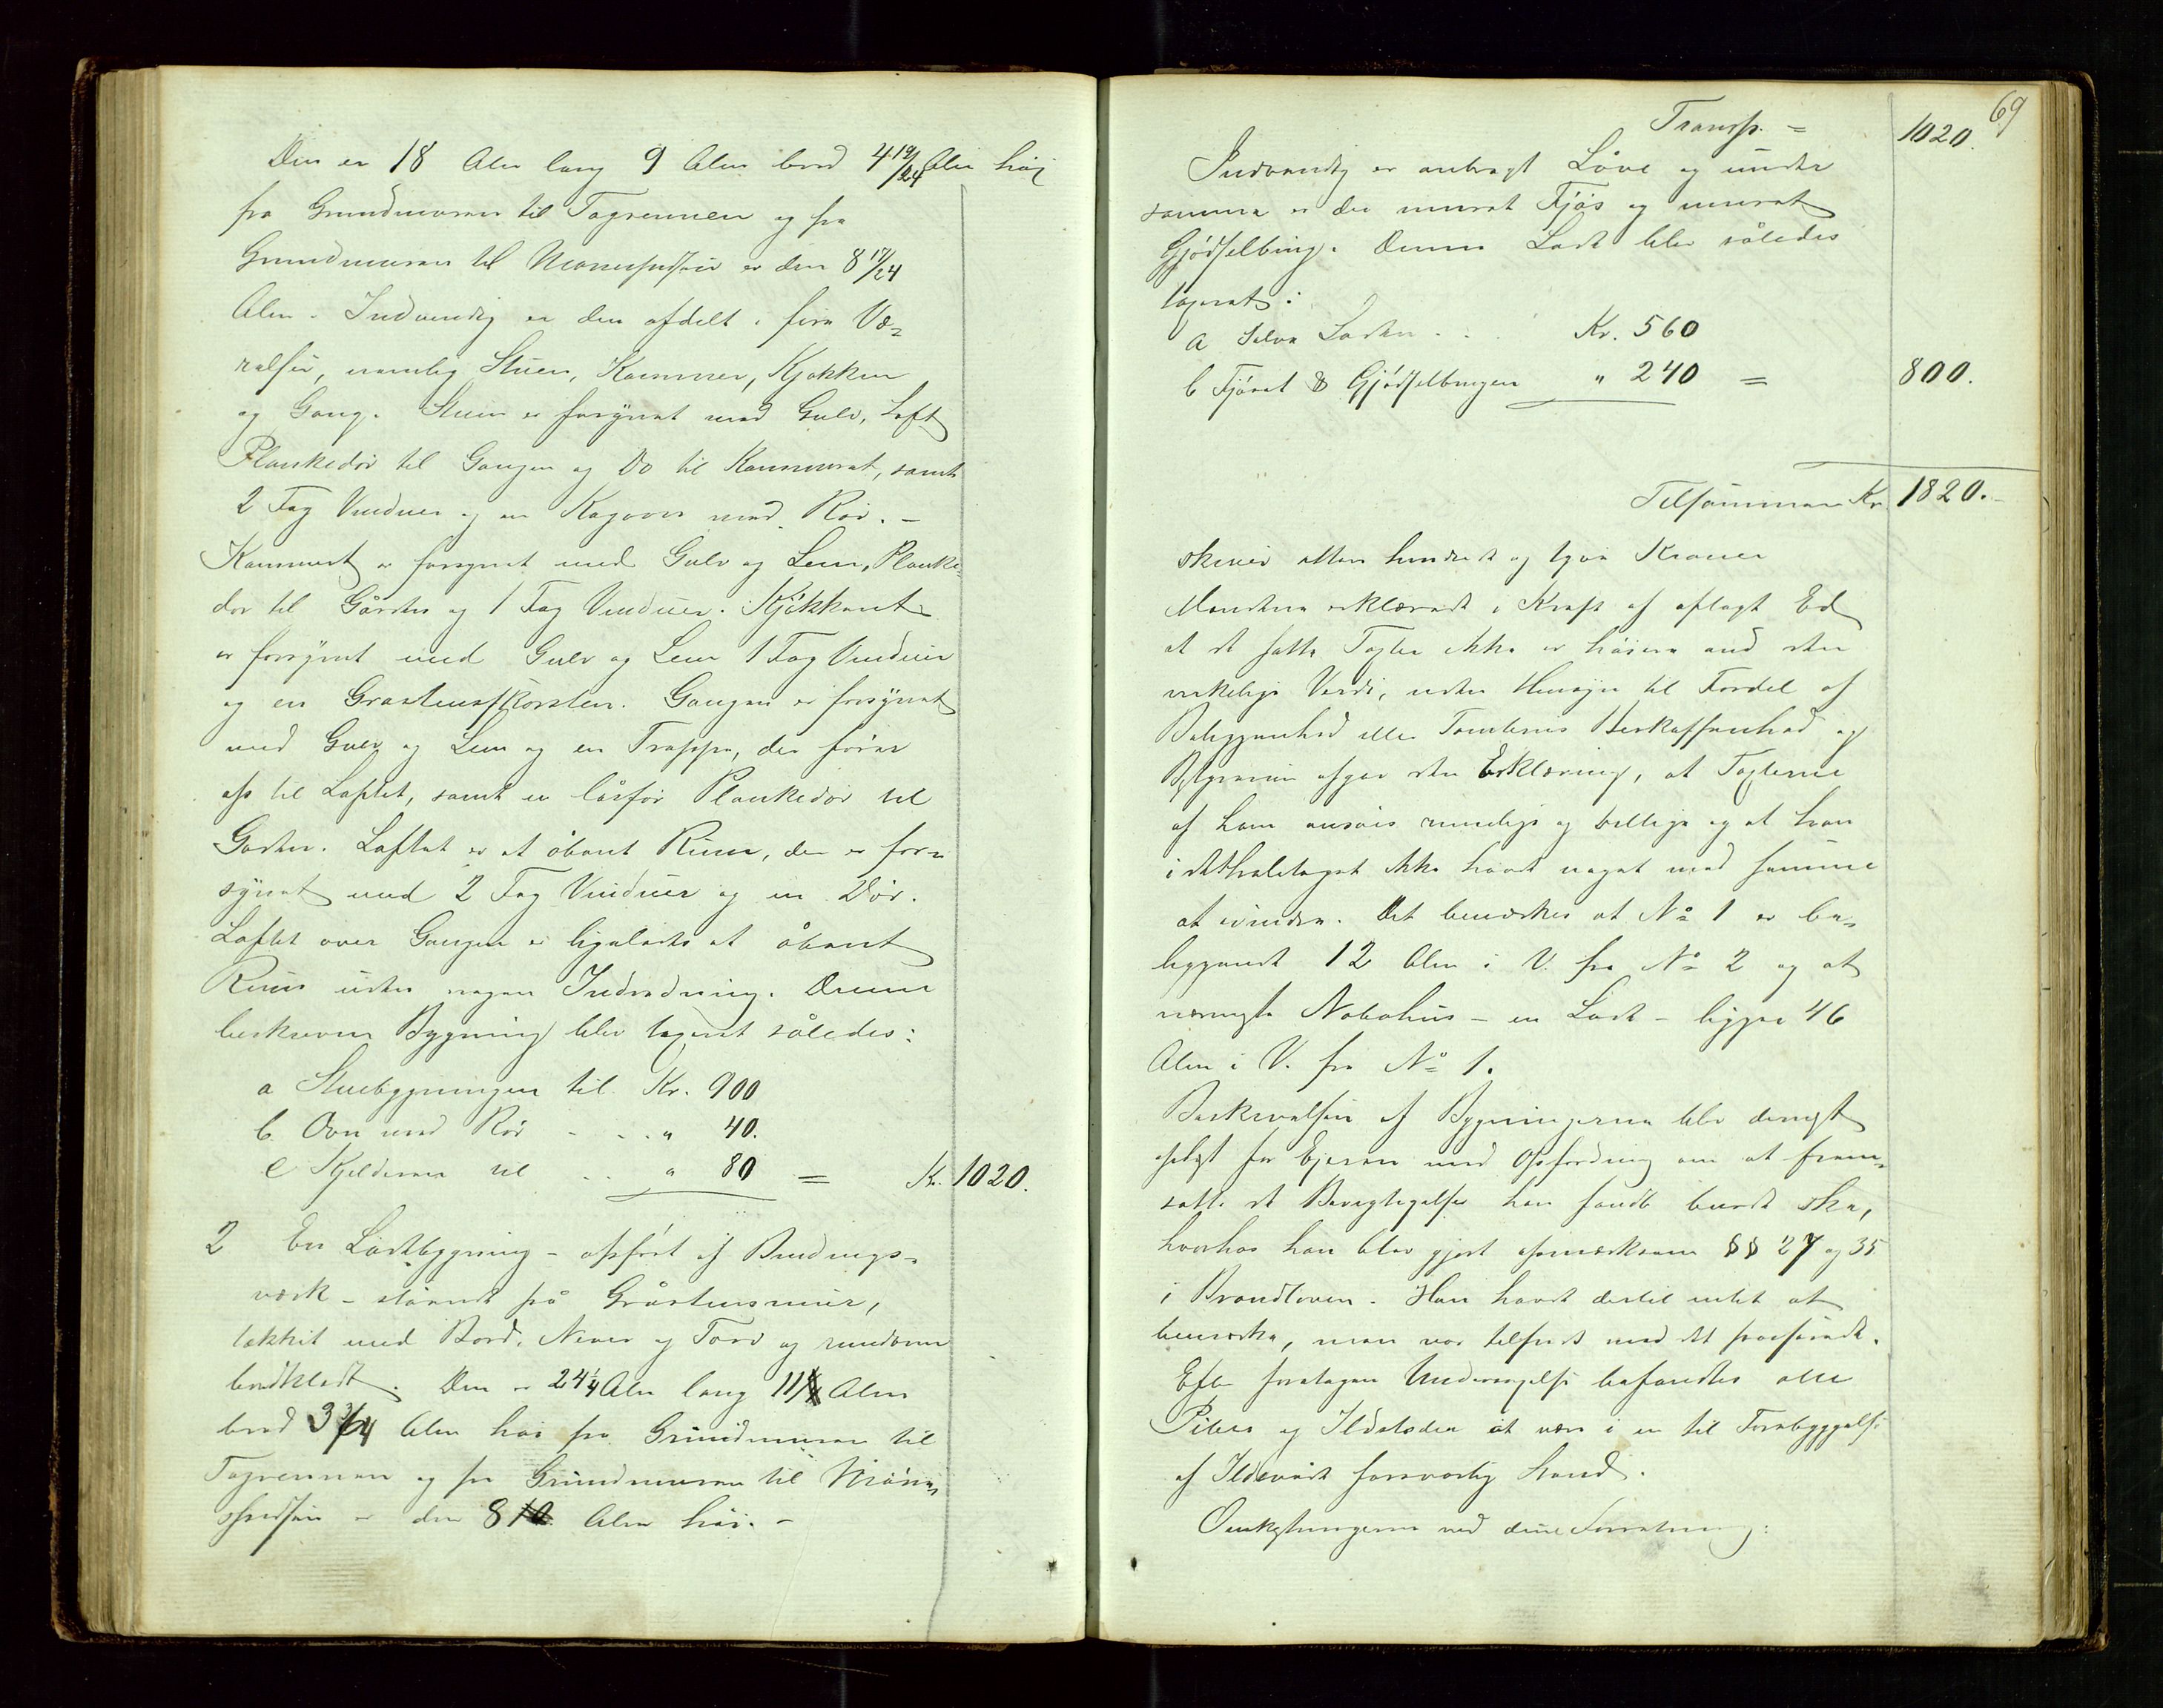 Den er 18 Alen lang 9 Alen bred 4 19/24 Alen høj
fra Grundmuren til Tagrennen og fra
Grundmuren til Mønespidsen er den 8 17/24
Alen. Indvendig er den afdelt i fire Væ-
relser, nemlig Stuen, Kammer, Kjøkken
og Gang. Stuen er forsynet med Gulv, Loft
Plankedør til Gangen og Do til Kammeret, samt
2 Fag Vinduer og en Kagovn med Rør. -
Kammeret er forsynet med Gulv og Lem, Planke-
dør til Gården og 1 Fag Vinduer. Kjøkkenet
er forsynet med Gulv og Lem 1 Fag Vinduer
og en Gråstensskorsten. Gangen er forsynet
med Gulv og Lem og en Trappe, der fører
op til Loftet, samt en låsfør Plankedør til
Gården. Loftet er et åbent Rum, der er for-
synet med 2 Fag Vinduer og en Dør.
Loftet over Gangen er ligeledes et åbent
Rum uden nogen Indredning. Denne
beskrevne Bygning blev taxeret således:
a Stuebygningen til Kr. 900
b. Ovn med Rør - - . . " 40.
c Kjelderen til . . " 80 = Kr. 1020.
2 En Ladebygning - opført af Bindings-
værk - stående på Gråstensmur,
tækket med Bord, Never og Torv og rundtom
bordklædt. Den er 24 1/4 Alen lang 11 Alen
bred 3 3/4 Alen høi fra Grundmuren til
Tagrennen og fra Grundmuren til Møne-
spidsen er den 8 Alen høi. -
69
Transp. = 1020.
Indvendig er anbragt Löve og under
samme er der muret Fjøs og muret
Gjødselbing. Denne Lade blev således
taxeret:
a Selve Laden . . . Kr. 560
b Fjøset & Gjødselbingen " 240 = 800.
Tilsammen Kr. 1820.-
skriver atten hundrede og tyve Kroner
Mændene erklærede i Kraft af aflagt Ed
at de satte Taxter ikke er høiere end den
virkelige Verdi, uden Hensyn til Fordel af
Beliggenhed eller Tomternes Beskaffenhed og
Bestyreren afgav den Erklæring, at Taxterne
af ham ansåes rimelige og billige og at han
i det hele taget ikke havde noget mod samme
at erindre. Det bemærkes at No 1 er be-
liggende 12 Alen i V. fra No 2 og at
nærmeste Nabohus - en Lade - ligger 46
Alen i V. fra No 1.
Beskrivelsen af Bygningerne blev dernæst
oplæst for Ejeren med Opfordring om at frem-
sætte de Berigtigelser han fandt burde ske,
hvorhos han blev gjort opmærksom §§ 27 og 35
i Brandloven. Han havde dertil intet at
bemærke, men var tilfreds med det passerede.
Efter foretagen Undersøgelse befandtes alle
Piber og Ildsteder at være i en til Forebyggelse
af Ildsvåde forsvarlig Stand.
Omkostningerne ved denne Forretning: